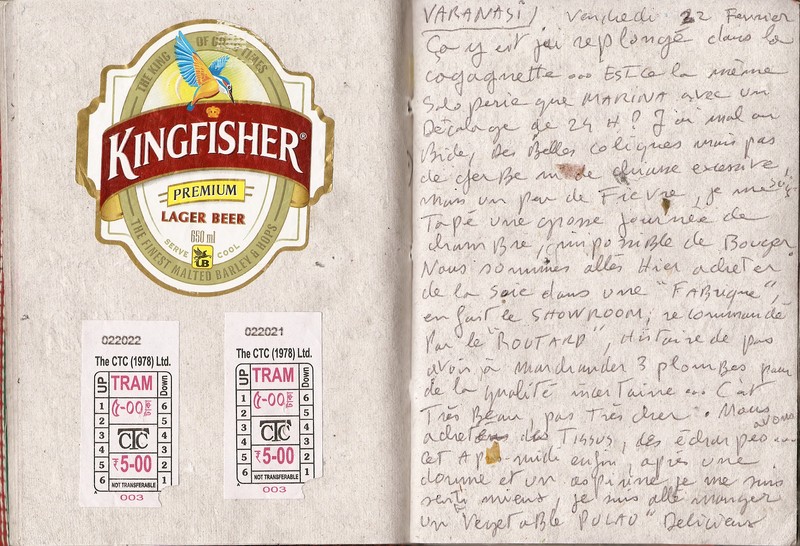 THE KING OF GOOD TIMES
KINGFISHER®
PREMIUM
LAGER BEER
650 ml
SERVE COOL
UB
THE FINEST MALTED BARLEY & HOPS
022022
The CTC (1978) Ltd.
UP TRAM Down
1 6
2 5
3 CTC 4
4 3
5 ₹5-00 2
6 NOT TRANSFERABLE 1
003
022021
The CTC (1978) Ltd.
UP TRAM Down
1 6
2 5
3 CTC 4
4 3
5 ₹5-00 2
6 NOT TRANSFERABLE 1
003
VARANASI, Vendredi 22 Fevrier
Ça y est j'ai replongé dans la
cagagnette ... EST ce la même
saloperie que MARINA avec un
Décalage de 24 H? J'ai mal au
Bide, Des Belles coliques mais pas
de gerbe ni de chiasse excessive
mais un peu de Fievre, je me suis
Tapé une grosse journée de
chambre, impossible de Bouger
Nous sommes allés Hier acheter
de la Soie dans une "FABrique",
en fait le SHOWROOM, recommandé
Par le "ROUTARD", Histoire de pas
avoir à Marchander 3 plombes pour
de la qualité incertaine ... C'est
Très Beau, pas Tres cher. Nous avons
acheté des Tissus, des écharpes ...
Cet Après-midi enfin, après une
et un aspirine je me suis
senti mieux, je suis allé manger
un "VegeTable PULAO" Delicieux